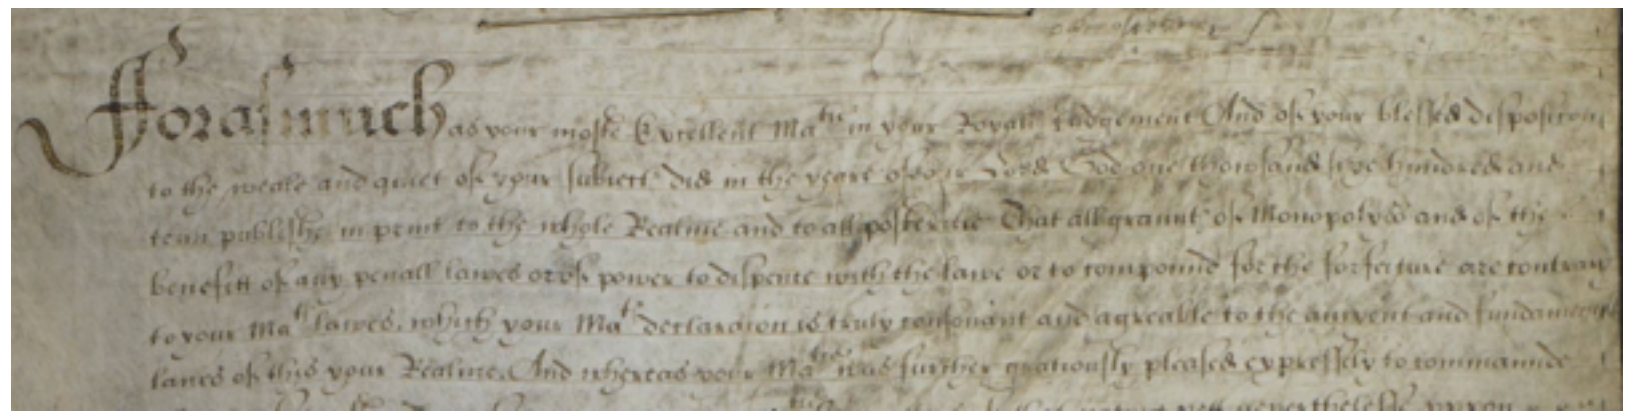 Fforasmuch as your moste Excellent Ma^tie in your Royall Judgement And of your blessed disposicon
to the weale and quiet of your subiect^s did in the yeare of our Lord God one thousand sixe hundred and
tenn publishe in print to the whole Realme and to all posteritie That all graunt^s of Monopolyes and of the
benefitt of any penall lawes or of power to dispence with the lawe or to compound for the forfeiture are contrary
to your Ma^ts lawes, which your Ma^ts declaracion is truly consonant and agreable to the auncient and fundamentall
lawes of this your Realme. And whereas your Ma^tie was further graciously pleased expressely to commaunde
nevertheless upon